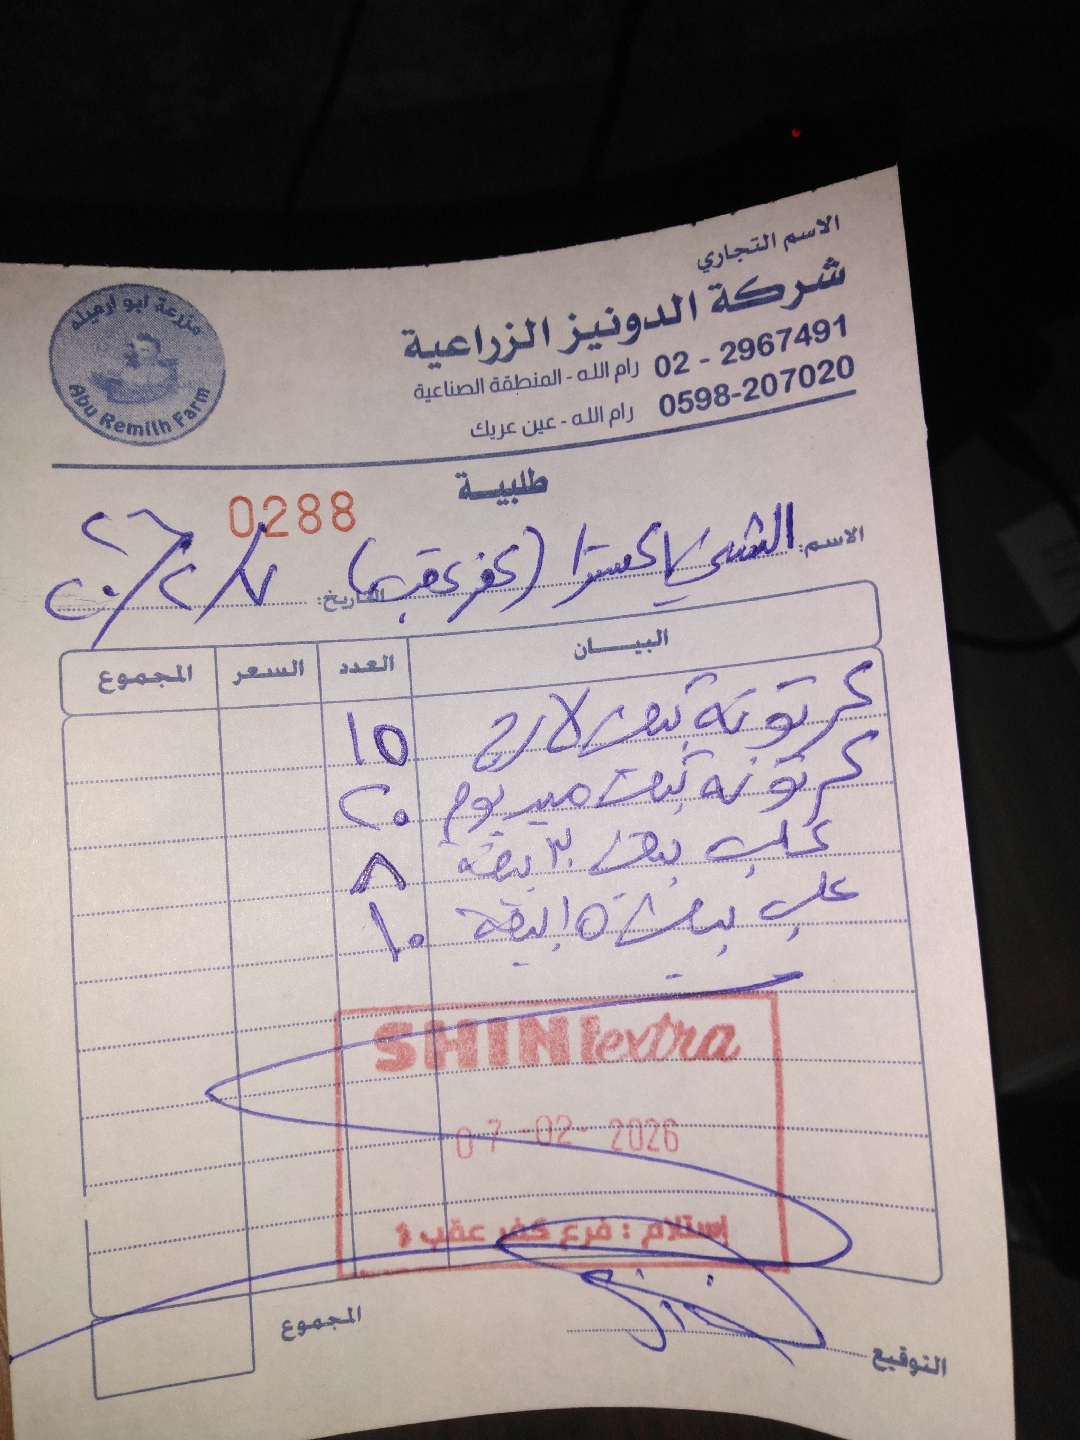 الاسم التجاري
شركة الدونيز الزراعية
02 - 2967491 رام الله - المنطقة الصناعية
0598-207020 رام الله - عين عريك
مزرعة ابو ارميله
Abu Remilh Farm
طلبية
0288
الاسم: الشيني اكسترا (كفر عقب) التاريخ: ٧/٢/٢٠٢٦
البيـــان العدد السعر المجموع
كرتونة بيض لارج ١٥
كرتونة بيض ميديوم ٢٠
علب بيض ٣٠ بيضة ٨
علب بيض ١٥ بيضة ١٠
SHINI extra
07-02-2026
إستلام : فرع كفر عقب
المجموع
التوقيع